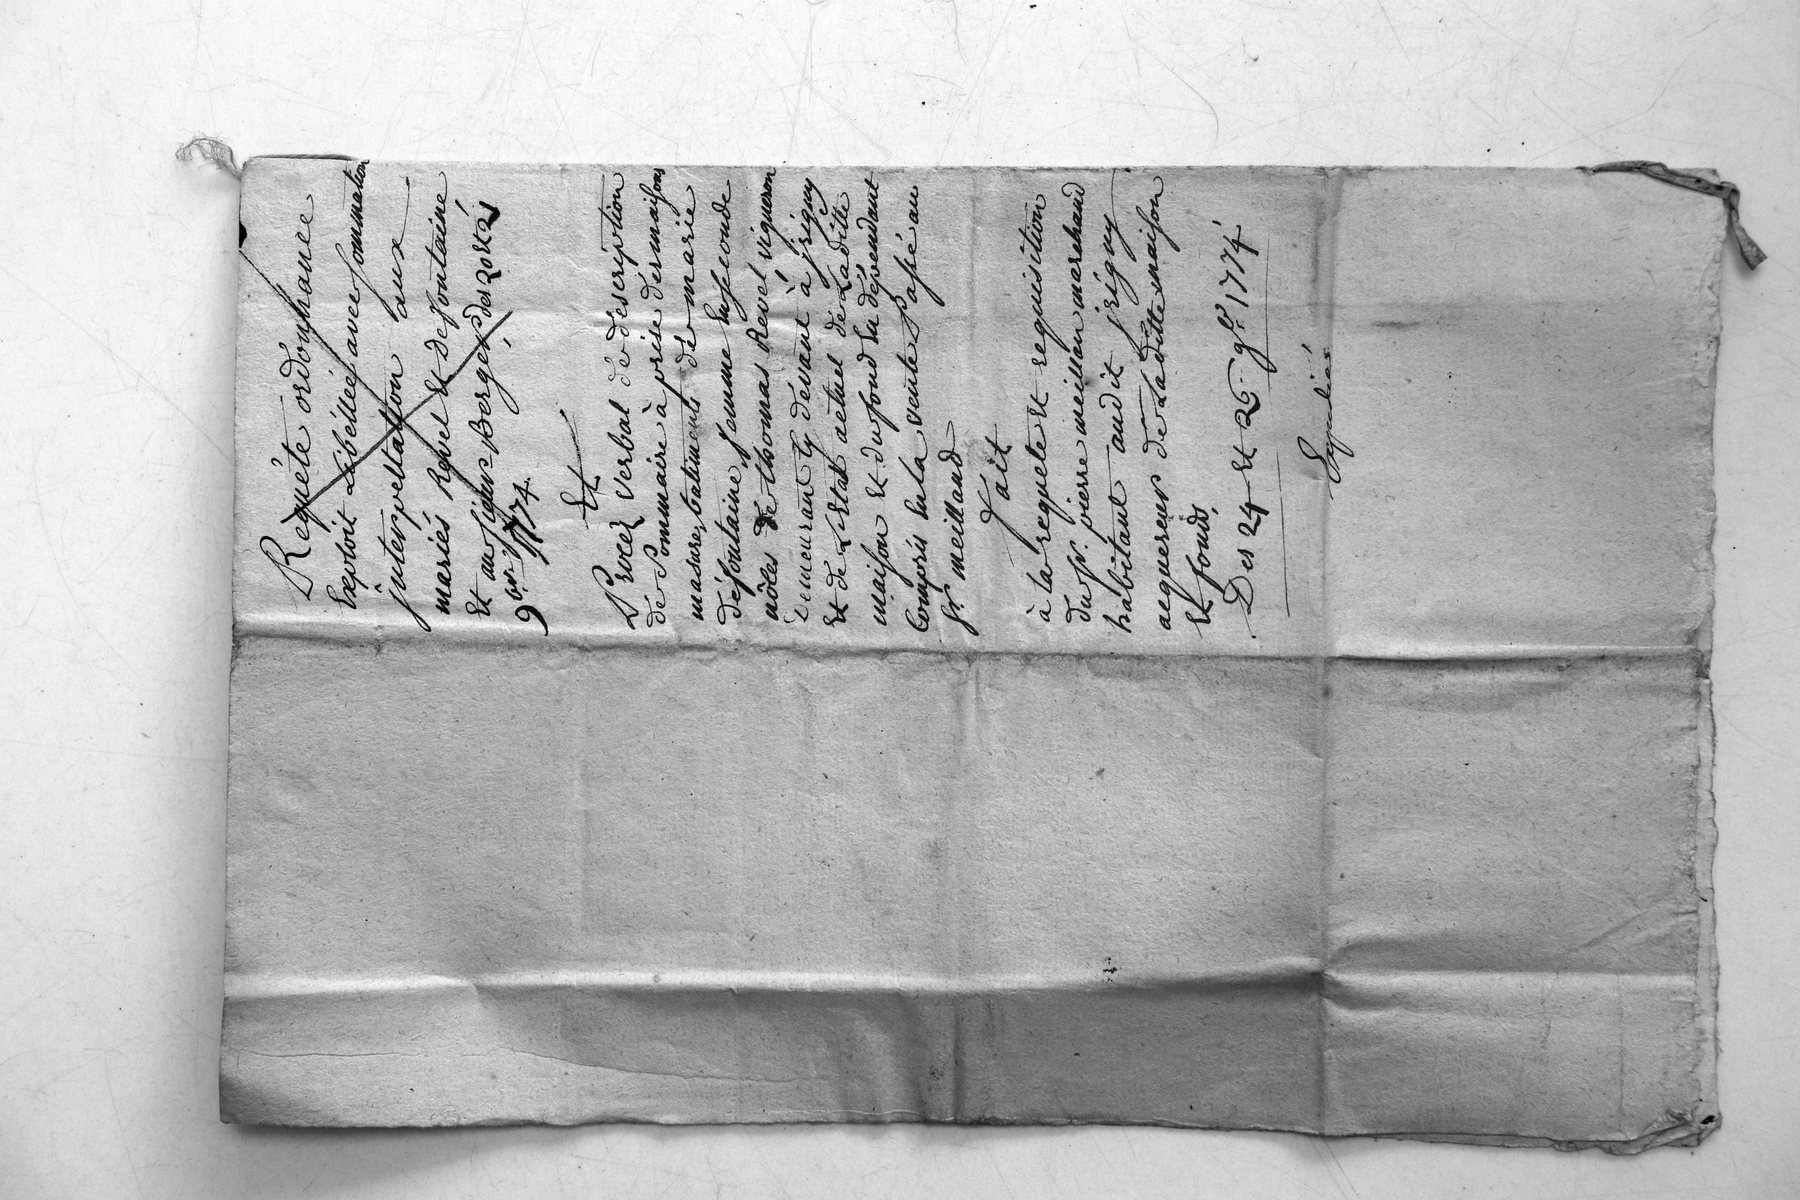 Requéte ordonnance
Exploit Libéllée avec sommation
jnterpellation aux
mariés Revel et defontaine
et au sieur Berger, des 20 et 21
9br. 1774.
Et
Procez Verbal dé déscription
dé Sommaire à prise dés maisons
masures, batiments dé marie
défontaine femme en seconde
nôces de thomas Revel vigneron
demeurant cy dévant à jrigny
et de L'Etat actuel de Laditte
maison et du fond en dépendant
Compris en la vente Passé au
sr. meilland
Fait
à la requete et requisition
du sr. pierre meillan marchand
habitant audit jrigny
acquereur de Laditte maison
et fonds,
Des 24 et 25 9br. 1774
Expediée